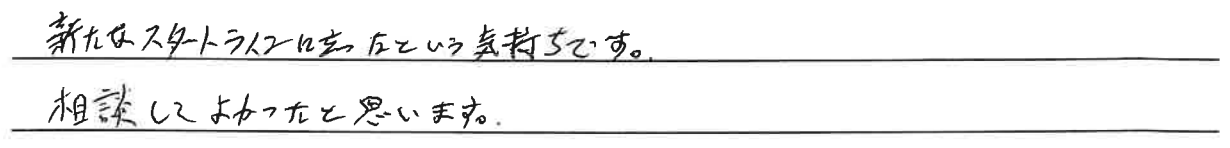 新たなスタートラインに立ったという気持ちです。
相談してよかったと思います。